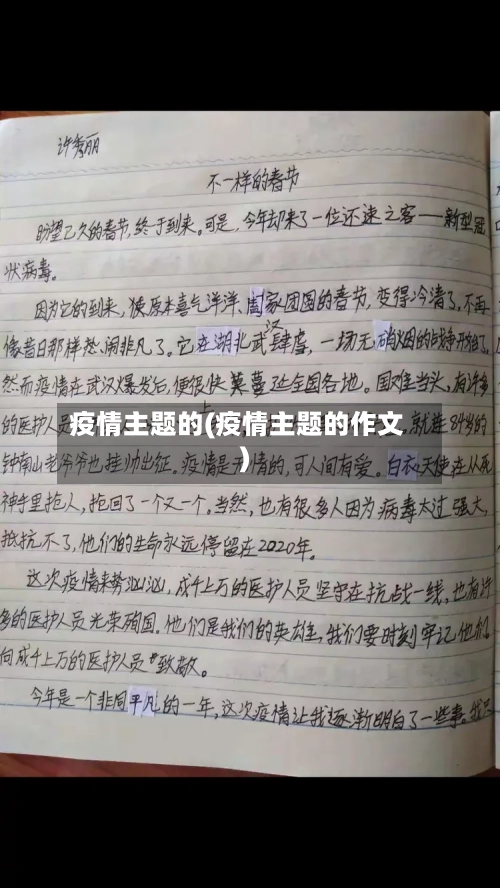 许秀丽
不一样的春节
盼望已久的春节,终于到来。可是,今年却来了一位不速之客——新型冠
状病毒。
因为它的到来,使原本喜气洋洋、阖家团圆的春节,变得冷清了,不再
像昔日那样热闹非凡了。它在湖北武汉肆虐,一场无硝烟的战争开始了。
然而疫情在武汉爆发后,便很快蔓延全国各地。国难当头,有许多
的医护人员
就连84岁的
疫情主题的(疫情主题的作文
)
钟南山老爷爷也挂帅出征。疫情是无情的,可人间有爱。白衣天使在从死
神手里抢人,抢回了一个又一个。当然,也有很多人因为病毒太过强大,
抵抗不了,他们的生命永远停留在2020年。
这次疫情来势汹汹,成千上万的医护人员坚守在抗战一线,也有许
多的医护人员光荣殉国。他们是我们的英雄,我们要时刻牢记他们,
向成千上万的医护人员致敬。
今年是一个非同平凡的一年,这次疫情让我逐渐明白了一些事。我